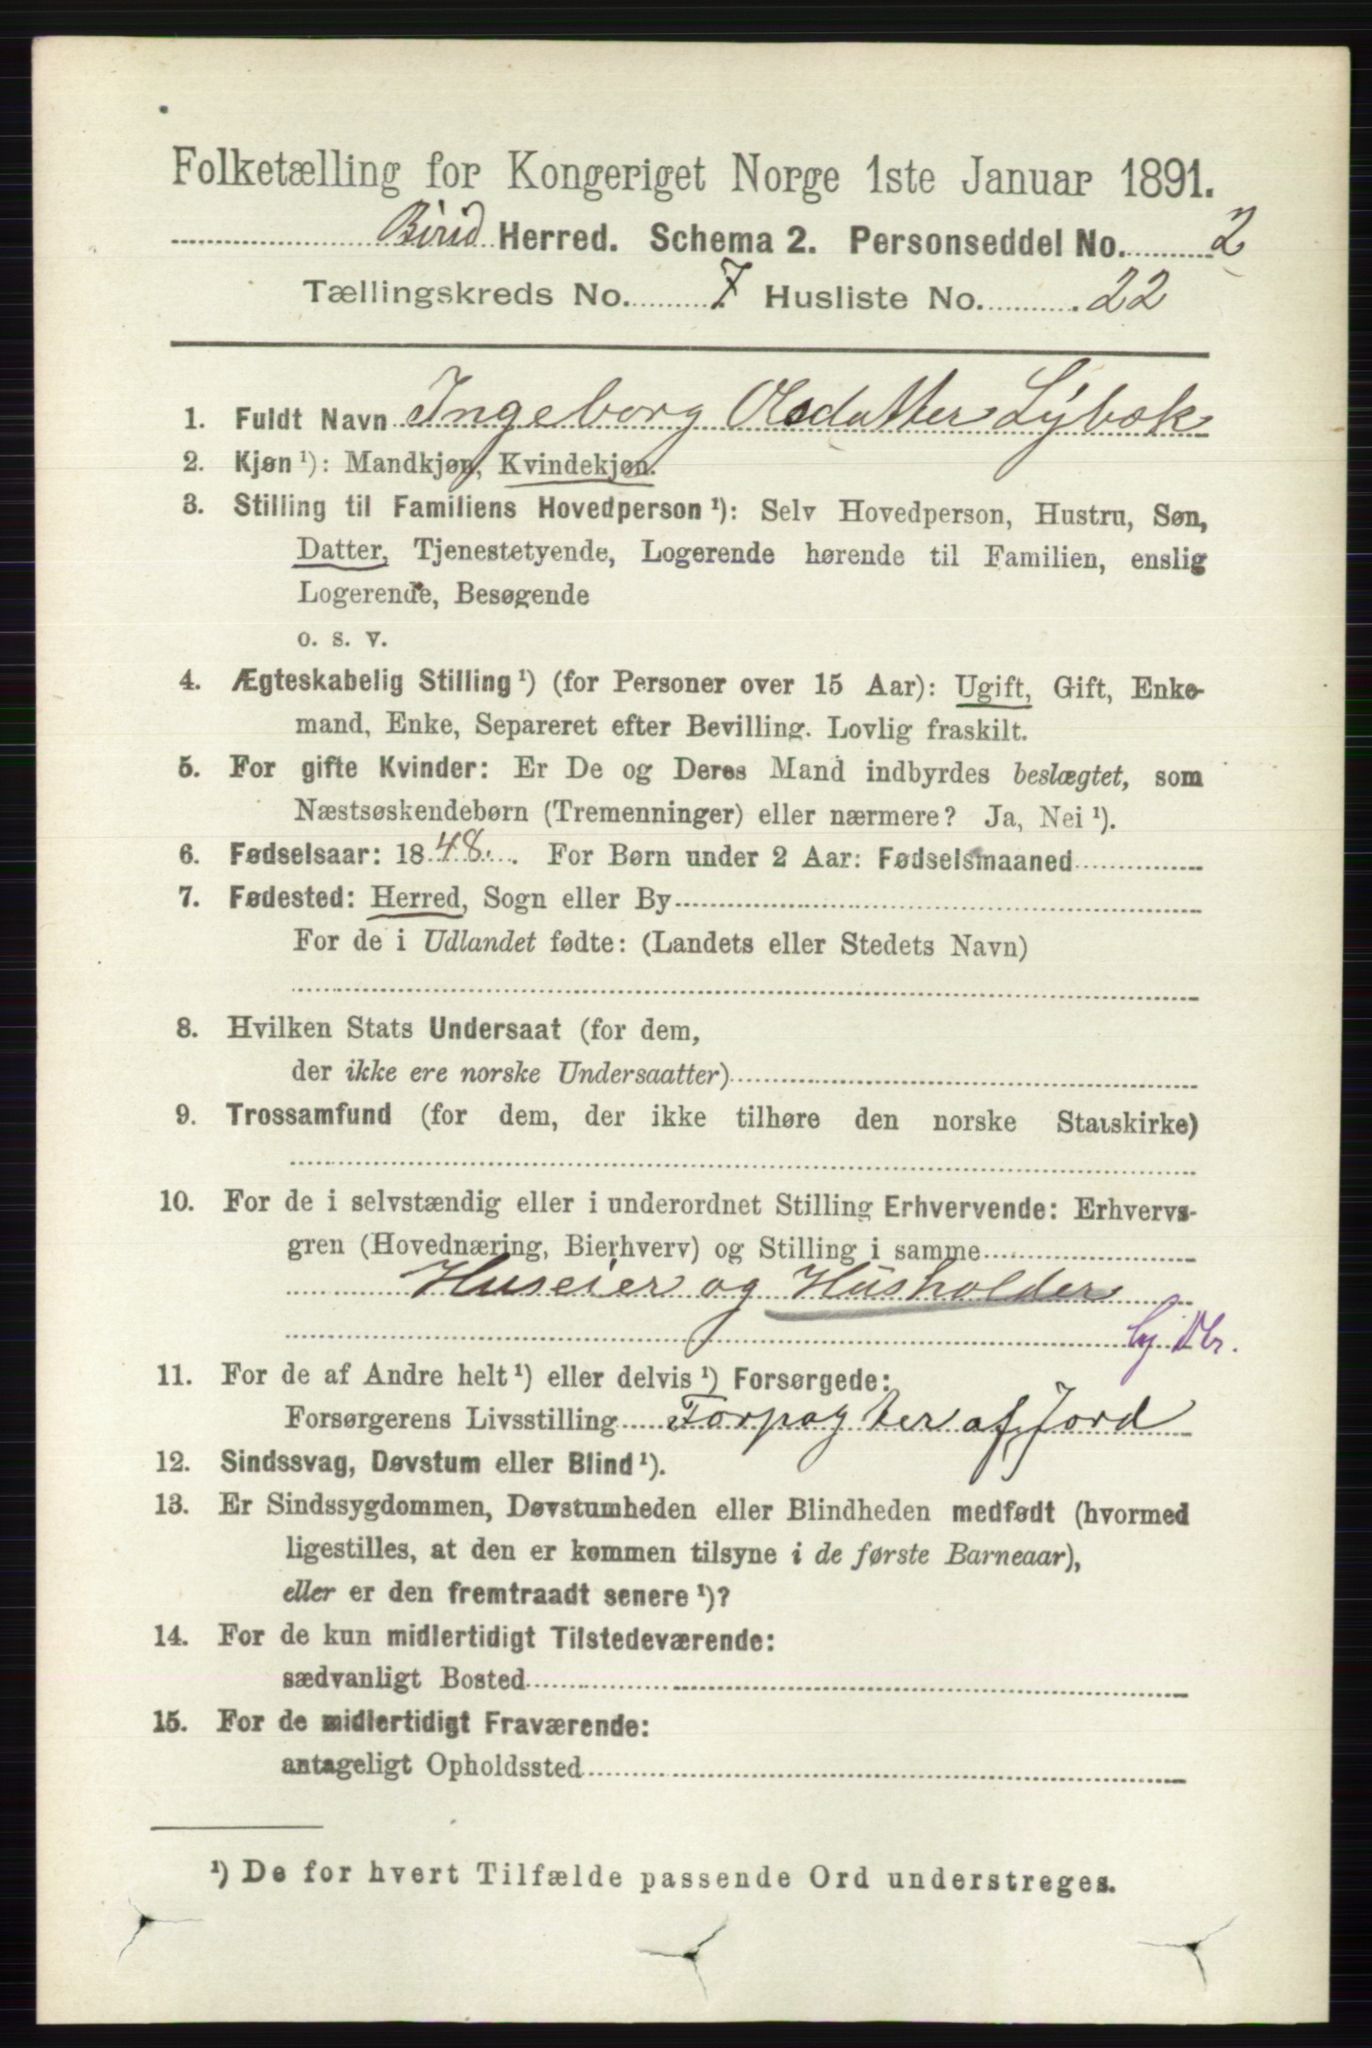 Folketælling for Kongeriget Norge 1ste Januar 1891.
Birid Herred. Schema 2. Personseddel No. 2
Tællingskreds No. 7 Husliste No. 22
1. Fuldt Navn Ingeborg Olsdatter Lybæk
2. Kjøn ¹): Mandkjøn, Kvindekjøn.
3. Stilling til Familiens Hovedperson ¹): Selv Hovedperson, Hustru, Søn,
Datter, Tjenestetyende, Logerende hørende til Familien, enslig
Logerende, Besøgende
o. s. v.
4. Ægteskabelig Stilling ¹) (for Personer over 15 Aar): Ugift, Gift, Enke-
mand, Enke, Separeret efter Bevilling. Lovlig fraskilt.
5. For gifte Kvinder: Er De og Deres Mand indbyrdes beslægtet, som
Næstsøskendebørn (Tremenninger) eller nærmere? Ja, Nei ¹).
6. Fødselsaar: 1848. For Børn under 2 Aar: Fødselsmaaned
7. Fødested: Herred, Sogn eller By
For de i Udlandet fødte: (Landets eller Stedets Navn)
8. Hvilken Stats Undersaat (for dem,
der ikke ere norske Undersaatter)
9. Trossamfund (for dem, der ikke tilhøre den norske Statskirke)
10. For de i selvstændig eller i underordnet Stilling Erhvervende: Erhvervs-
gren (Hovednæring, Bierhverv) og Stilling i samme
Huseier og Husholder
11. For de af Andre helt ¹) eller delvis ¹) Forsørgede:
Forsørgerens Livsstilling Forpagter af Jord
12. Sindssvag, Døvstum eller Blind ¹).
13. Er Sindssygdommen, Døvstumheden eller Blindheden medfødt (hvormed
ligestilles, at den er kommen tilsyne i de første Barneaar),
eller er den fremtraadt senere ¹)?
14. For de kun midlertidigt Tilstedeværende:
sædvanligt Bosted
15. For de midlertidigt Fraværende:
antageligt Opholdssted
¹) De for hvert Tilfælde passende Ord understreges.